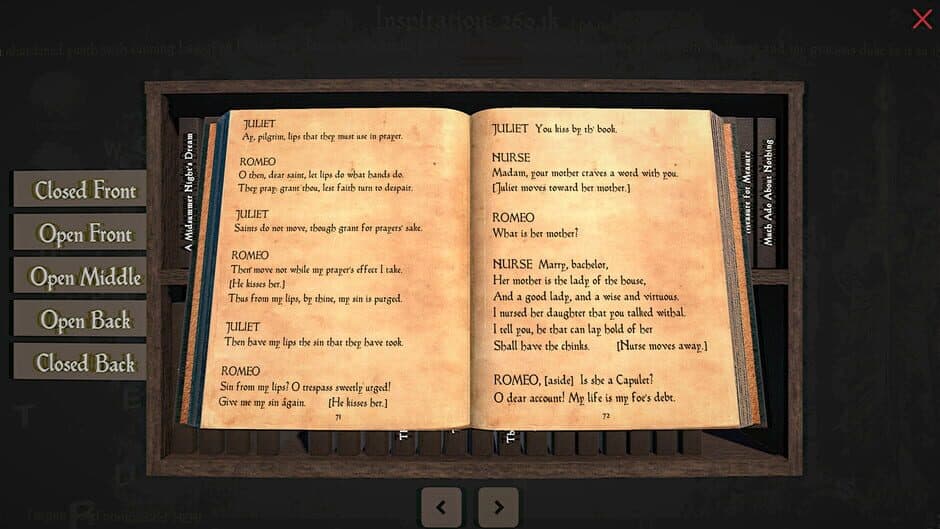 Inspiration: 260.1k
Closed Front
Open Front
Open Middle
Open Back
Closed Back
A Midsummer Night's Dream
JULIET
Ay, pilgrim, lips that they must use in prayer.
ROMEO
O then, dear saint, let lips do what hands do.
They pray; grant thou, lest faith turn to despair.
JULIET
Saints do not move, though grant for prayers' sake.
ROMEO
Then move not while my prayer's effect I take.
[He kisses her.]
Thus from my lips, by thine, my sin is purged.
JULIET
Then have my lips the sin that they have took.
ROMEO
Sin from my lips? O trespass sweetly urged!
Give me my sin again. [He kisses her.]
71
JULIET You kiss by th' book.
NURSE
Madam, your mother craves a word with you.
[Juliet moves toward her mother.]
ROMEO
What is her mother?
NURSE Marry, bachelor,
Her mother is the lady of the house,
And a good lady, and a wise and virtuous.
I nursed her daughter that you talked withal.
I tell you, he that can lay hold of her
Shall have the chinks. [Nurse moves away.]
ROMEO, [aside] Is she a Capulet?
O dear account! My life is my foe's debt.
72
Measure for Measure
Much Ado About Nothing